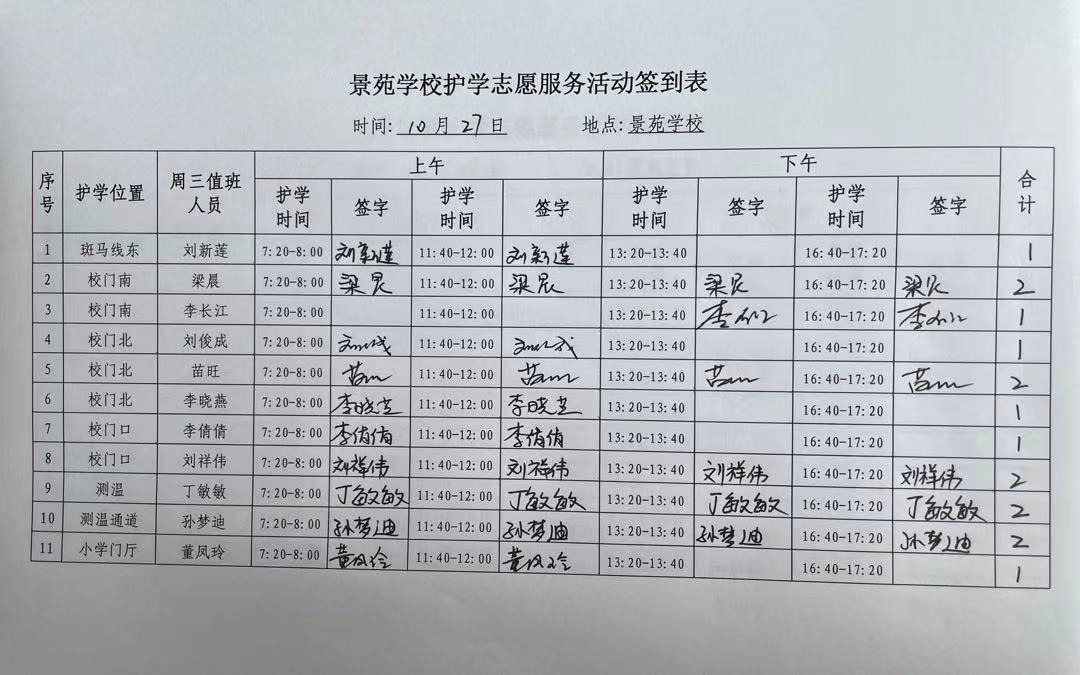 景苑学校护学志愿服务活动签到表
时间: 10 月 27 日 地点: 景苑学校
序号 护学位置 周三值班人员 上午 下午 合计
护学时间 签字 护学时间 签字 护学时间 签字 护学时间 签字
1 斑马线东 刘新莲 7:20-8:00 刘新莲 11:40-12:00 刘新莲 13:20-13:40 16:40-17:20 1
2 校门南 梁晨 7:20-8:00 梁晨 11:40-12:00 梁晨 13:20-13:40 梁晨 16:40-17:20 梁晨 2
3 校门南 李长江 7:20-8:00 11:40-12:00 13:20-13:40 李长江 16:40-17:20 李长江 1
4 校门北 刘俊成 7:20-8:00 刘俊成 11:40-12:00 刘俊成 13:20-13:40 16:40-17:20 1
5 校门北 苗旺 7:20-8:00 苗旺 11:40-12:00 苗旺 13:20-13:40 苗旺 16:40-17:20 苗旺 2
6 校门北 李晓燕 7:20-8:00 李晓燕 11:40-12:00 李晓燕 13:20-13:40 16:40-17:20 1
7 校门口 李倩倩 7:20-8:00 李倩倩 11:40-12:00 李倩倩 13:20-13:40 16:40-17:20 1
8 校门口 刘祥伟 7:20-8:00 刘祥伟 11:40-12:00 刘祥伟 13:20-13:40 刘祥伟 16:40-17:20 刘祥伟 2
9 测温 丁敏敏 7:20-8:00 丁敏敏 11:40-12:00 丁敏敏 13:20-13:40 丁敏敏 16:40-17:20 丁敏敏 2
10 测温通道 孙梦迪 7:20-8:00 孙梦迪 11:40-12:00 孙梦迪 13:20-13:40 孙梦迪 16:40-17:20 孙梦迪 2
11 小学门厅 董凤玲 7:20-8:00 董凤玲 11:40-12:00 董凤玲 13:20-13:40 16:40-17:20 1